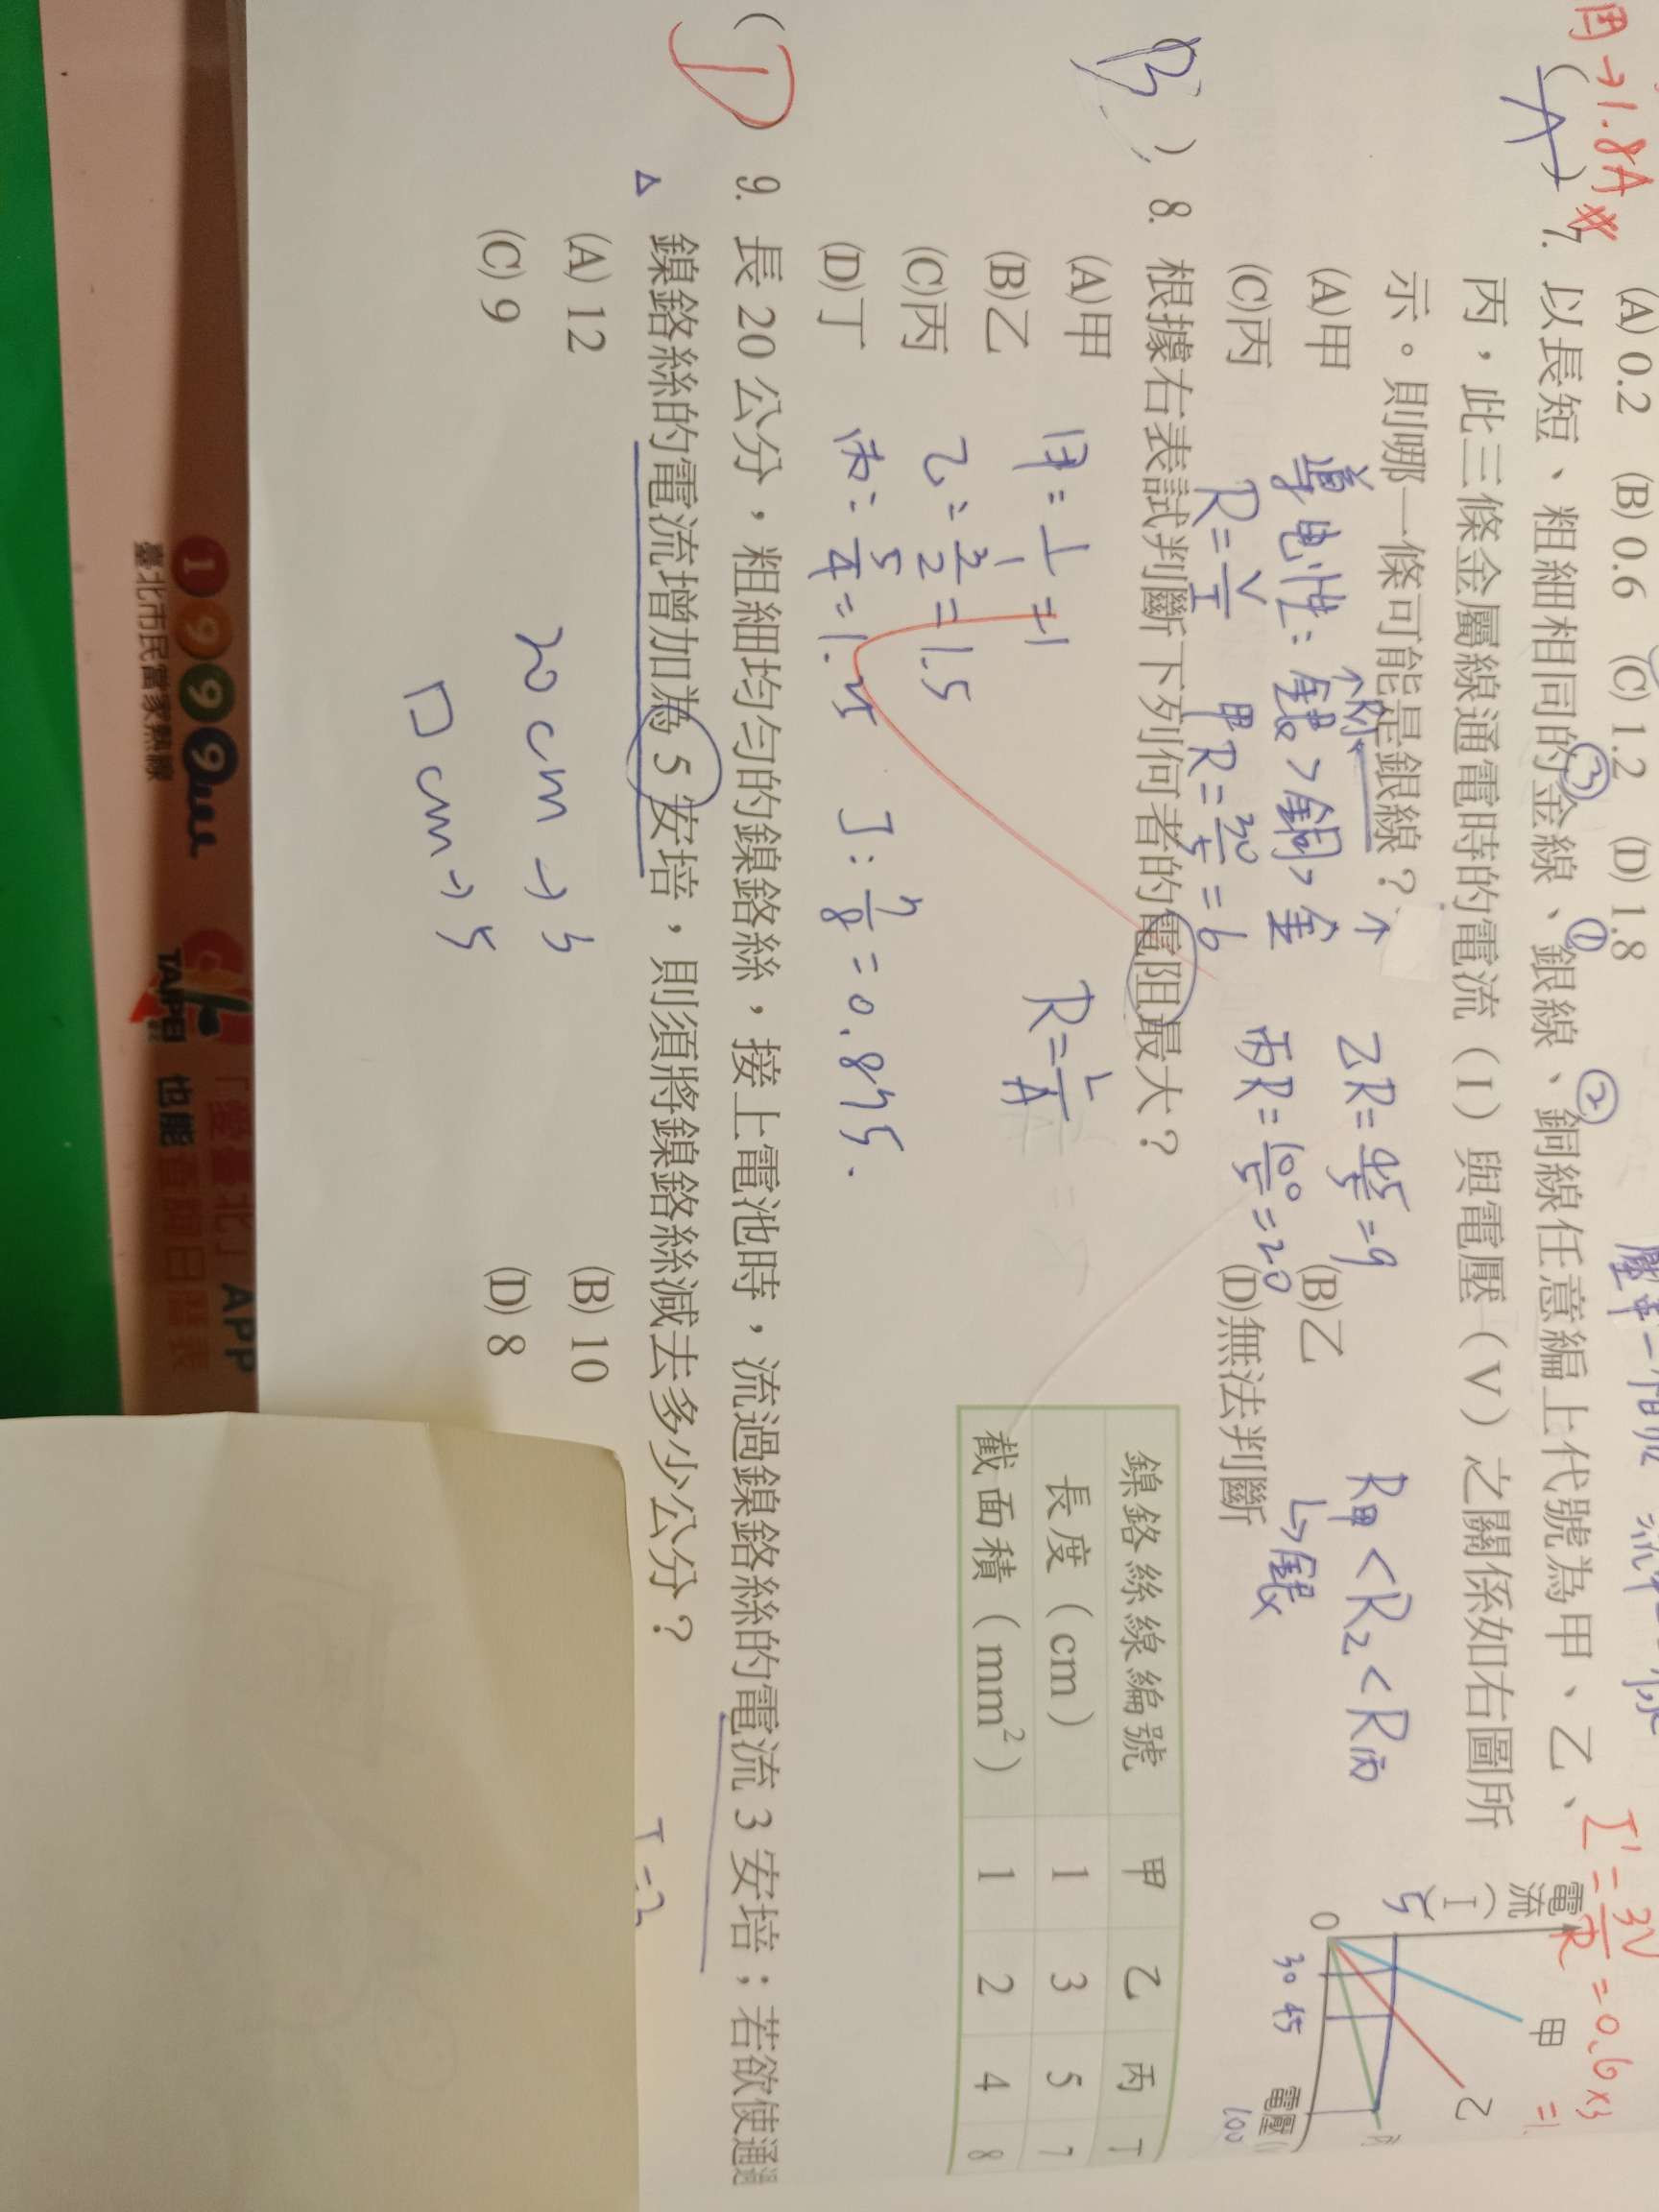 (A) 0.2 (B) 0.6 (C) 1.2 (D) 1.8
→1.8A
(A) 7. 以長短、粗細相同的金線、銀線、銅線任意編上代號為甲、乙、
③ ① ②
丙，此三條金屬線通電時的電流（I）與電壓（V）之關係如右圖所
示。則哪一條可能是銀線？
(A)甲
(B)乙
(C)丙
(D)無法判斷
導电性：銀>銅>金
R=V/I
甲R=30/5=6
乙R=45/5=9
丙R=100/5=20
R甲<R乙<R丙
↳銀
I'=3V/R=0.6×3
電流(I)
5
0
30 45 100
電壓
甲
乙
(B) 8. 根據右表試判斷下列何者的電阻最大？
(A)甲
(B)乙
(C)丙
(D)丁
甲=1/1=1
乙=3/2=1.5
丙=5/4=1.25
丁：7/8=0.875.
R=L/A
鎳鉻絲線編號 甲 乙 丙 丁
長度（cm） 1 3 5 7
截面積（mm²） 1 2 4 8
(D) 9. 長 20 公分，粗細均勻的鎳鉻絲，接上電池時，流過鎳鉻絲的電流 3 安培；若欲使通過
鎳鉻絲的電流增加為 5 安培，則須將鎳鉻絲減去多少公分？
(A) 12
(B) 10
(C) 9
(D) 8
20 cm → 3
□ cm → 5
1999
臺北市民當家熱線
TAIPEI
「愛臺北」APP
也能